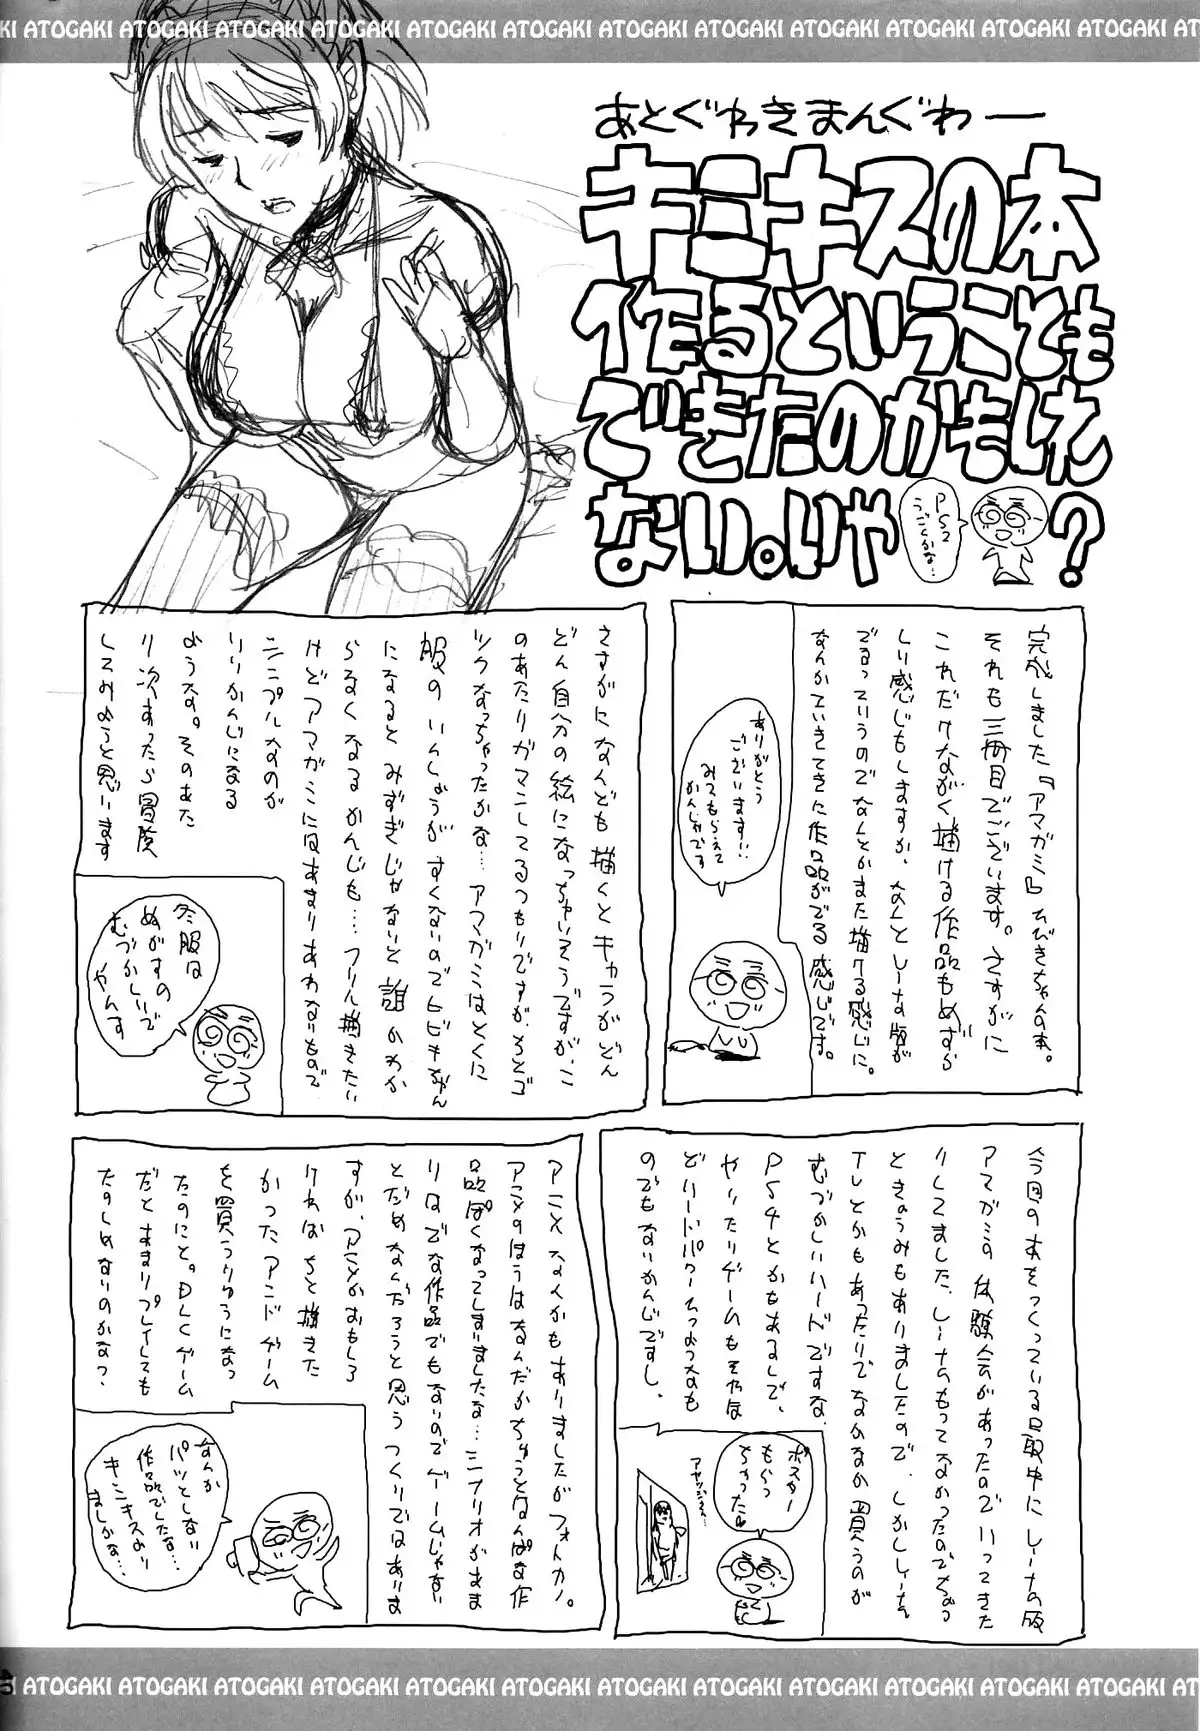 KI ATOGAKI ATOGAKI ATOGAKI ATOGAKI ATOGAKI ATOGAKI ATOGAKI ATOGAKI ATOGAKI ATOGAKI ATOGAKI AT
あとぐわきまんぐわー
キミキスの本
作るということも
できたのかもしれ
ない。いや
PS2
うごくかな…
?
完成しました『アマガミ』ひびきちゃん本。
それも三冊目でございます。さすがに
これだけながく描ける作品もめずら
しい感じもしますが、なんとしーな版が
でるっていうのでなんとかまた描ける感じに。
なんかていきてきに作品がでる感じです。
ありがとう
ございます!!
みてもらえて
かんしゃです
さすがになんども描くとキャラがどん
どん自分の絵になっちゃいそうですが、こ
のあたりガマンしてるつもりですが、ちとゴ
ツクなっちゃったかな…アマガミはとくに
服のいんしょうがすくないのでヒビキちゃん
になるとみずぎじゃないと誰かわか
らなくなるかんじも…フリル描きたい
けどアマガミにはあまりあわないもので
シンプルなのが
いいかんじになる
ような。そのあた
り次あったら冒険
してみようと思います
冬服は
ぬがすの
むづかしいで
やんす
今回の本をつくっている最中にしーなの版
アマガミの体験会があったのでいってきた
りしてました、しーなもってなかったのでちょっ
ときょうみもありましたので、しかししーな
TLとかもあったりでなかなか買うのが
むづかしいハードですな、
PS4とかもあるしで、
やりたいゲームもそんな
どハードパワーつかうもの
のでもないかんじですし。
ポスター
もらっ
ちゃった
アニメなんかもありましたがフォトカノ。
アニメのほうはなんだかちゅうとはんぱな作
品ぽくなってしまいましたな…シナリオがまま
りはでな作品でもないのでゲームじゃない
とだめなんだろうと思うつくりではありま
すが、アニメがおもしろ
ければちと描きた
かったアンドゲーム
を買うりゆうになっ
たのにと。DLCゲーム
だとあまりプレイしても
たのしめないのかな?
なんか
パッとしない
作品でしたな…
キミキスより
ましかな…
KI ATOGAKI ATOGAKI ATOGAKI ATOGAKI ATOGAKI ATOGAKI ATOGAKI ATOGAKI ATOGAKI ATOGAKI ATOGAKI AT